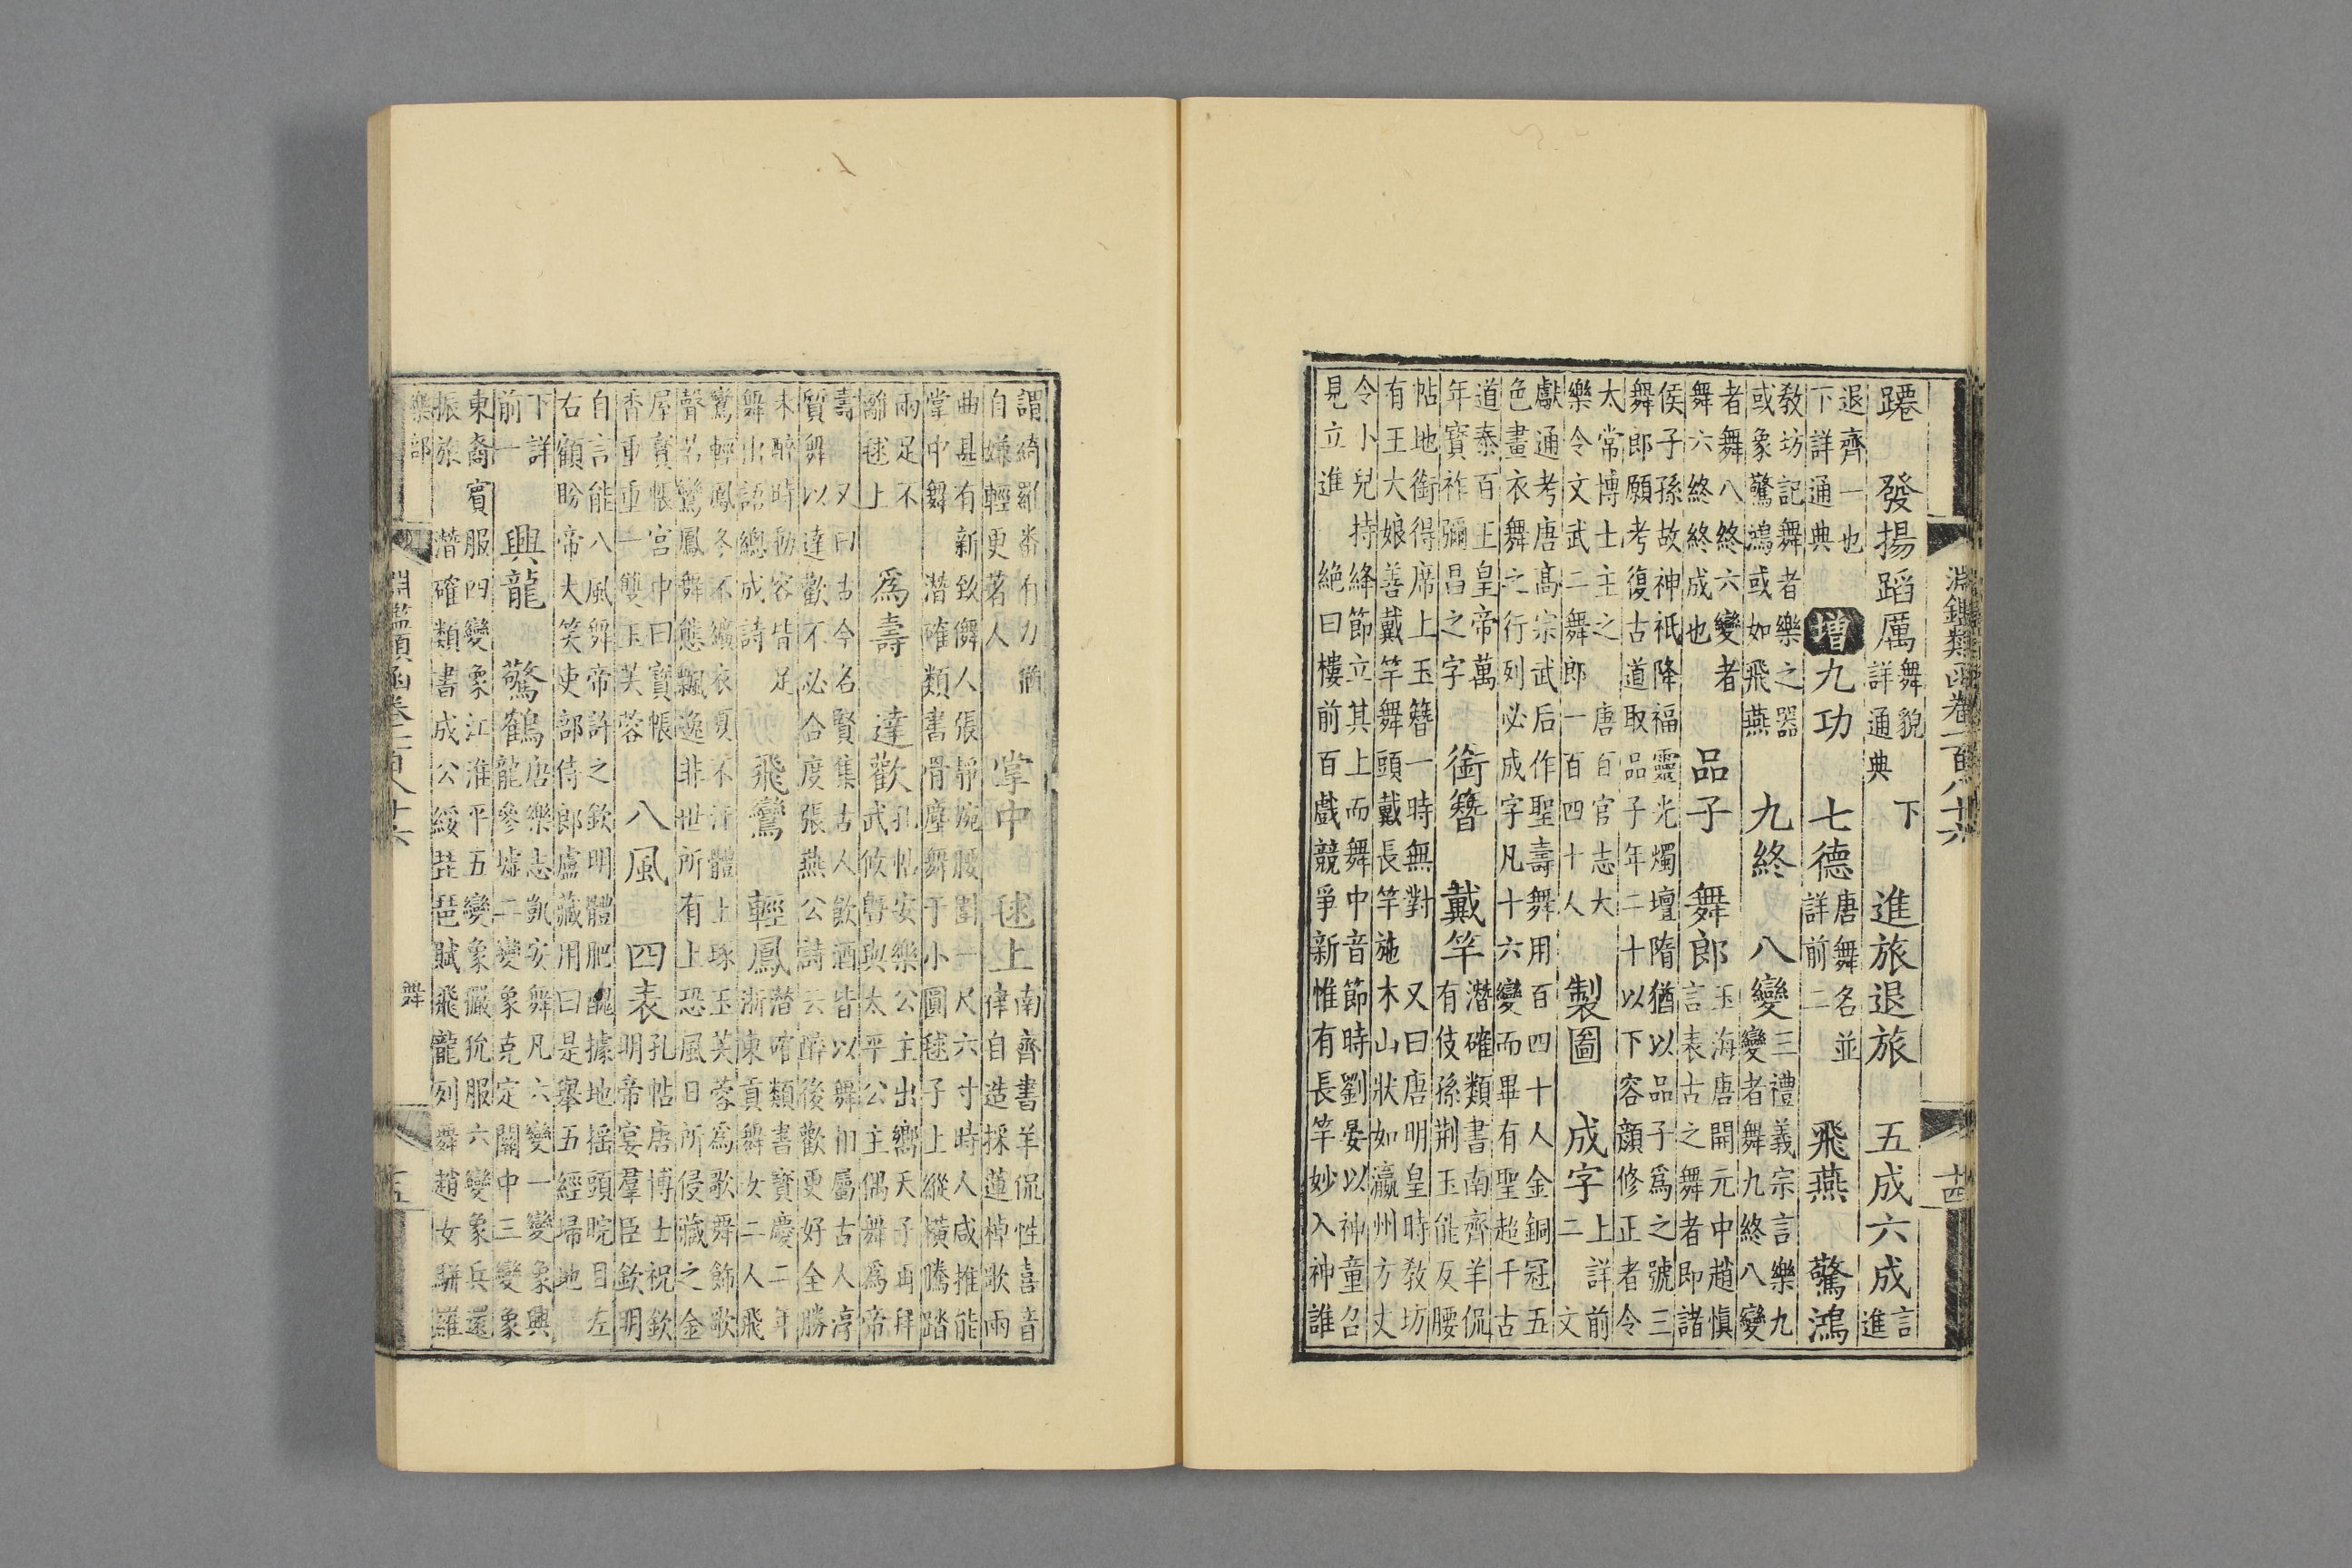 淵鑑類函卷一百八十六 十四
蹮 發揚蹈厲 舞貌下詳通典 進旅退旅 五成六成 言進
退齊一也下詳通典 增 九功 七德 唐舞名並詳前二 飛燕 驚鴻
敎坊記舞者樂之器或象驚鴻或如飛燕 九終 八變 三禮義宗言樂九變者舞九終八變
者舞八終六變者舞六終終成也 品子 舞郎 玉海唐開元中趙愼言表古之舞者即諸
侯子孫故神祇降福靈光燭壇隋猶以品子爲之號三
舞郎願考復古道取品子年二十以下容顔修正者令
太常博士主之 唐百官志大樂令文武二舞郎一百四十人 製圖 成字 上詳前二文
獻通考唐高宗武后作聖壽舞用百四十人金銅冠五
色畫衣舞之行列必成字凡十六變而畢有聖超千古
道泰百王皇帝萬年寶祚彌昌之字 銜簪 戴竿 潛確類書南齊羊侃有伎孫荆玉能反腰
帖地銜得席上玉簪一時無對 又曰唐明皇時敎坊
有王大娘善戴竿舞頭戴長竿施木山狀如瀛州方丈
令小兒持絳節立其上而舞中音節時劉晏以神童召
見立進絶曰樓前百戲競爭新惟有長竿妙入神誰
謂綺羅番有力猶自嫌輕更著人 掌中 毬上 南齊書羊侃性喜音律自造採蓮棹歌兩
曲甚有新致儛人張靜婉腰圍一尺六寸時人咸推能
掌中舞 潛確類書骨塵舞于小圓毬子上縱橫騰踏
兩足不離毬上 爲壽 達歡 孔帖安樂公主出嚮天子再拜武攸暨與太平公主偶舞爲帝
壽 又曰古今名賢集古人飲酒皆以舞相屬古人淳
質舞以達歡不必合度張燕公詩云醉後歡更好全勝
未醉時動容皆足舞出語總成詩 飛鸞 輕鳳 潛確類書寶慶二年浙東貢舞女二人飛
鸞輕鳳冬不纊衣夏不汗體上琢玉芙蓉爲歌舞飾歌
聲若鸞鳳舞態飄逸非世所有上恐風日所侵藏之金
屋寶帳宮中曰寶帳香重重一雙玉芙蓉 八風 四表 孔帖唐博士祝欽明帝宴羣臣欽明
自言能八風舞帝許之欽明體肥醜據地揺頭睆目左
右顧盼帝大笑吏部侍郎盧藏用曰是舉五經埽地
下詳前一 興龍 驚鶴 唐樂志凱安舞凡六變一變象興龍參墟二變象克定關中三變象
東裔賓服四變象江淮平五變象玁狁服六變象兵還
振旅 潛確類書成公綏琵琶賦飛龍列舞趙女駢羅
樂部 淵鑑類函卷一百八十六 舞 十五